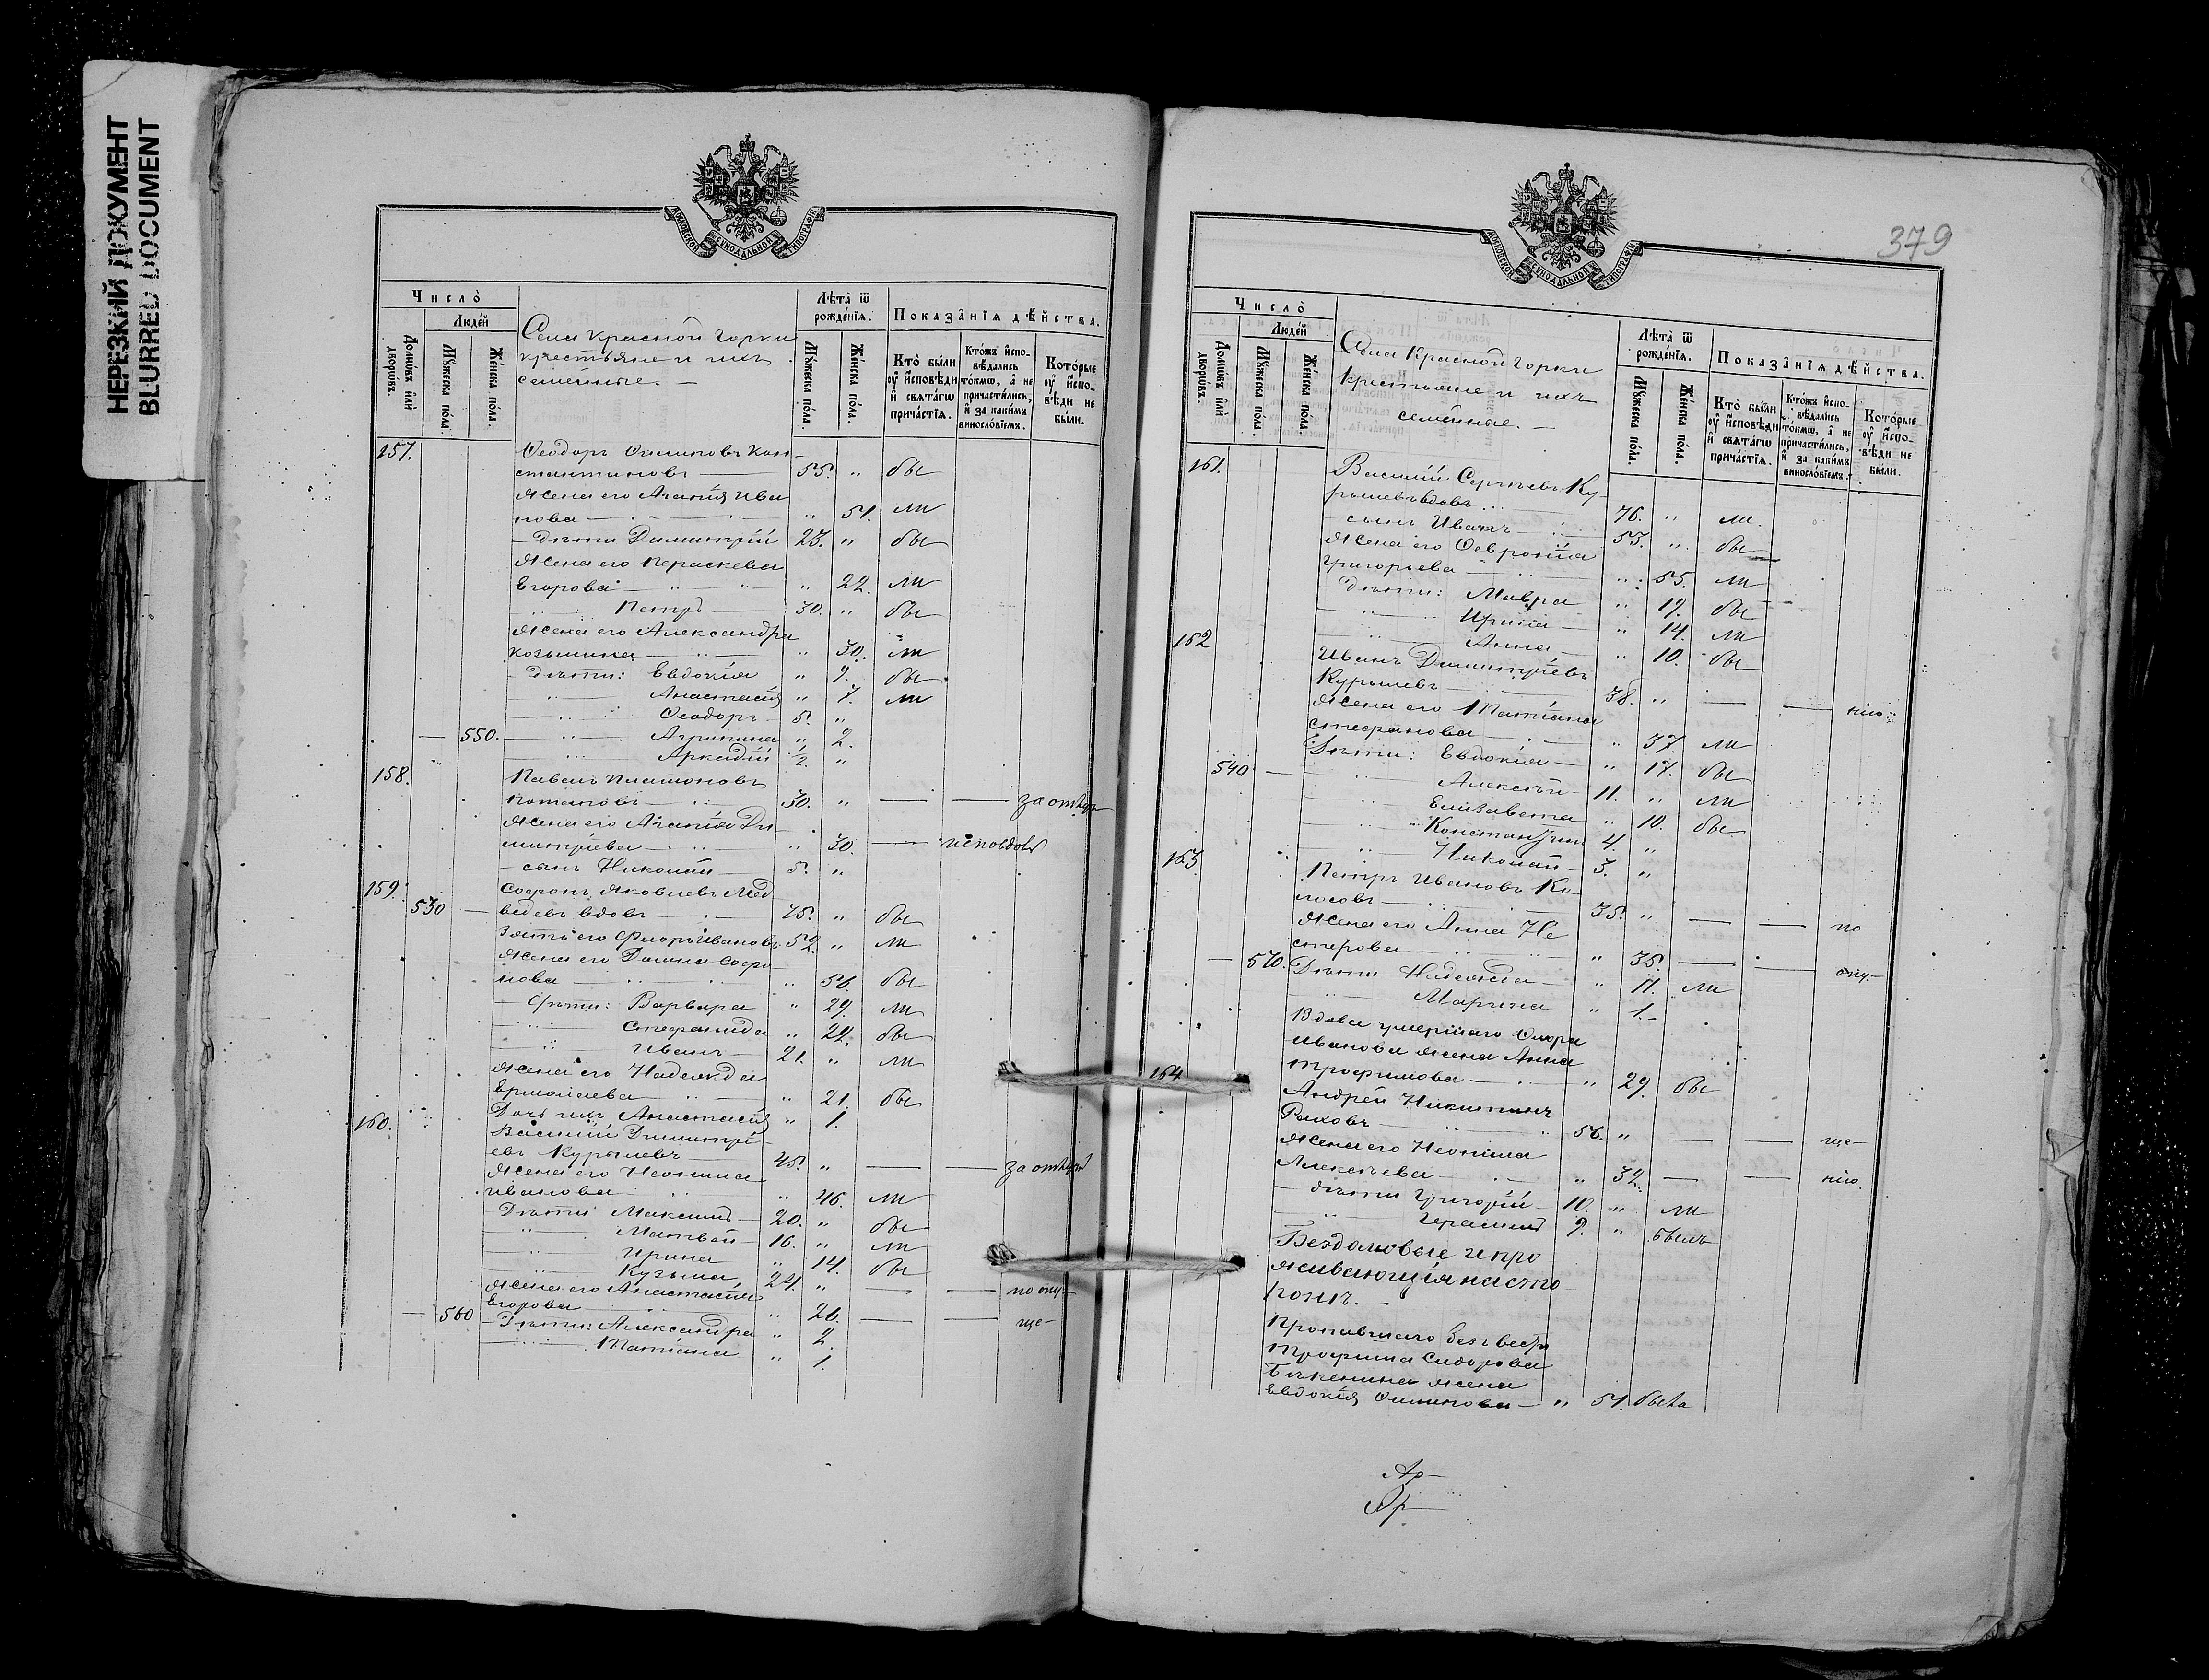 НЕРЕЗКИЙ ДОКУМЕНТ
BLURRED DOCUMENT
МОСКОВСКОЙ СѴНОДАЛЬНОЙ ТИПОГРАФІИ
Число̀
Людей
Домѡвъ и҆лѝ дворѡвъ.
Мꙋ́жеска пóла.
Жéнска пóла.
Села Красной Горки
крестьяне и ихъ
семейные. —
Лѣ́та ѿ рождéнїѧ.
Мꙋ́жеска пóла.
Жéнска пóла.
Показа̂нїѧ дѣ́йства.
Ктò бы́ли ᲂу҆ и҆сповѣди и҆ свѧта́гѡ прича́стїѧ.
Ктóжъ и҆спо-вѣдались тóкмѡ, а҆ не причасти́лись, и҆ за каки́мъ винослóвїемъ.
Котóрые ᲂу҆ и҆спо-вѣди не бы́ли.
157. Ѳеодоръ Симиновъ Кон-
стантиновъ 55. „ бы
Жена его Агапія Ива
нова — „ 51. ли
— Дѣти Димитрій 23. „ бы
Жена его Параскева
Егорова — „ 22. ли
Петръ — 30. „ бы
Жена его Александра
Козьмина — „ 30. ли
— Дѣти: Евдокія „ 9. бы
Анастасія „ 7. ли
Ѳеодоръ 5. „
— 550. Агрипина „ 2.
Аркадій ½ „
158. Павелъ Платоновъ
Потаповъ — 30. „ — — за отлуч
Жена его Агапія Ди-
митріева — „ 30. — исповѣдов
— сынъ Николай — 5. „
159. Софронъ Яковлевъ Мед
530 — ведевъ вдовъ 75. „ бы
Зять его Флоръ Ивановъ 52. „ ли
Жена его Домна Софро
нова „ 56. бы
— Дѣти: Варвара „ 29. ли
Стефанида „ 22. бы
Иванъ — 21. „ ли
Жена его Надежда
Ермолаева — „ 21. бы
Дочь ихъ Анастасія „ 1.
160. Василій Димитрі-
евъ Курылевъ — 45. „ — — за отлуч
Жена его Неонила
Иванова „ 46. ли
— Дѣти Максимъ — 20. „ бы
Матвѣй — 16. „ ли
Ирина „ 14. бы
Кузьма 24. „ — — по отлу-
Жена его Анастасія
Егорова „ 26. — — че-
— 560 — Дѣти: Александра „ 2.
Татіана „ 1.
379
МОСКОВСКОЙ СѴНОДАЛЬНОЙ ТИПОГРАФІИ
Число̀
Людей
Домѡвъ и҆лѝ дворѡвъ.
Мꙋ́жеска пóла.
Жéнска пóла.
Села Красной Горки
Крестьяне и ихъ
семейные. —
Лѣ́та ѿ рождéнїѧ.
Мꙋ́жеска пóла.
Жéнска пóла.
Показа̂нїѧ дѣ́йства.
Ктò бы́ли ᲂу҆ и҆сповѣди и҆ свѧта́гѡ прича́стїѧ.
Ктóжъ и҆спо-вѣдались тóкмѡ, а҆ не причасти́лись, и҆ за каки́мъ винослóвїемъ.
Котóрые ᲂу҆ и҆спо-вѣди не бы́ли.
161. Василій Сергѣевъ Ку-
рылевъ вдовъ 76. „ ли
сынъ Иванъ 55. „ бы
Жена его Февронія
Григорьева — „ 55. ли
— Дѣти: Мавра „ 19. бы
Ирина — „ 14. ли
Анна — „ 10. бы
162 Иванъ Димитріевъ
Курылевъ — 38. „ — — нію.
Жена его Татіана
Стефанова „ 37. ли
Дѣти: Евдокія — „ 17. бы
540 — Алексѣй 11. „ ли
Елизавета „ 10. бы
Константинъ 4. „
Николай 3. „
163 Петръ Ивановъ Ко-
лосовъ — 35. „ — — по
Жена его Анна Не
стерова „ 35. — — отлу-
— 570. Дѣти Надежда — „ 11. ли
Марина „ 1.
Вдова умершаго Флора
Иванова жена Анна
Трофимова — „ 29. бы
164 Андрей Никитинъ
Раковъ „ 56. „ — — че-
Жена его Неонила
Алексѣева „ 32. — — нію.
— дѣти Григорій — 10. „ ли
Герасимъ 9. „ былъ
Бездомовые и про
живающія на сто
ронѣ. —
Пропавшаго безъ вести
Трофима Сидорова
жена
Евдокія Симинова — „ 51. была
Ар—